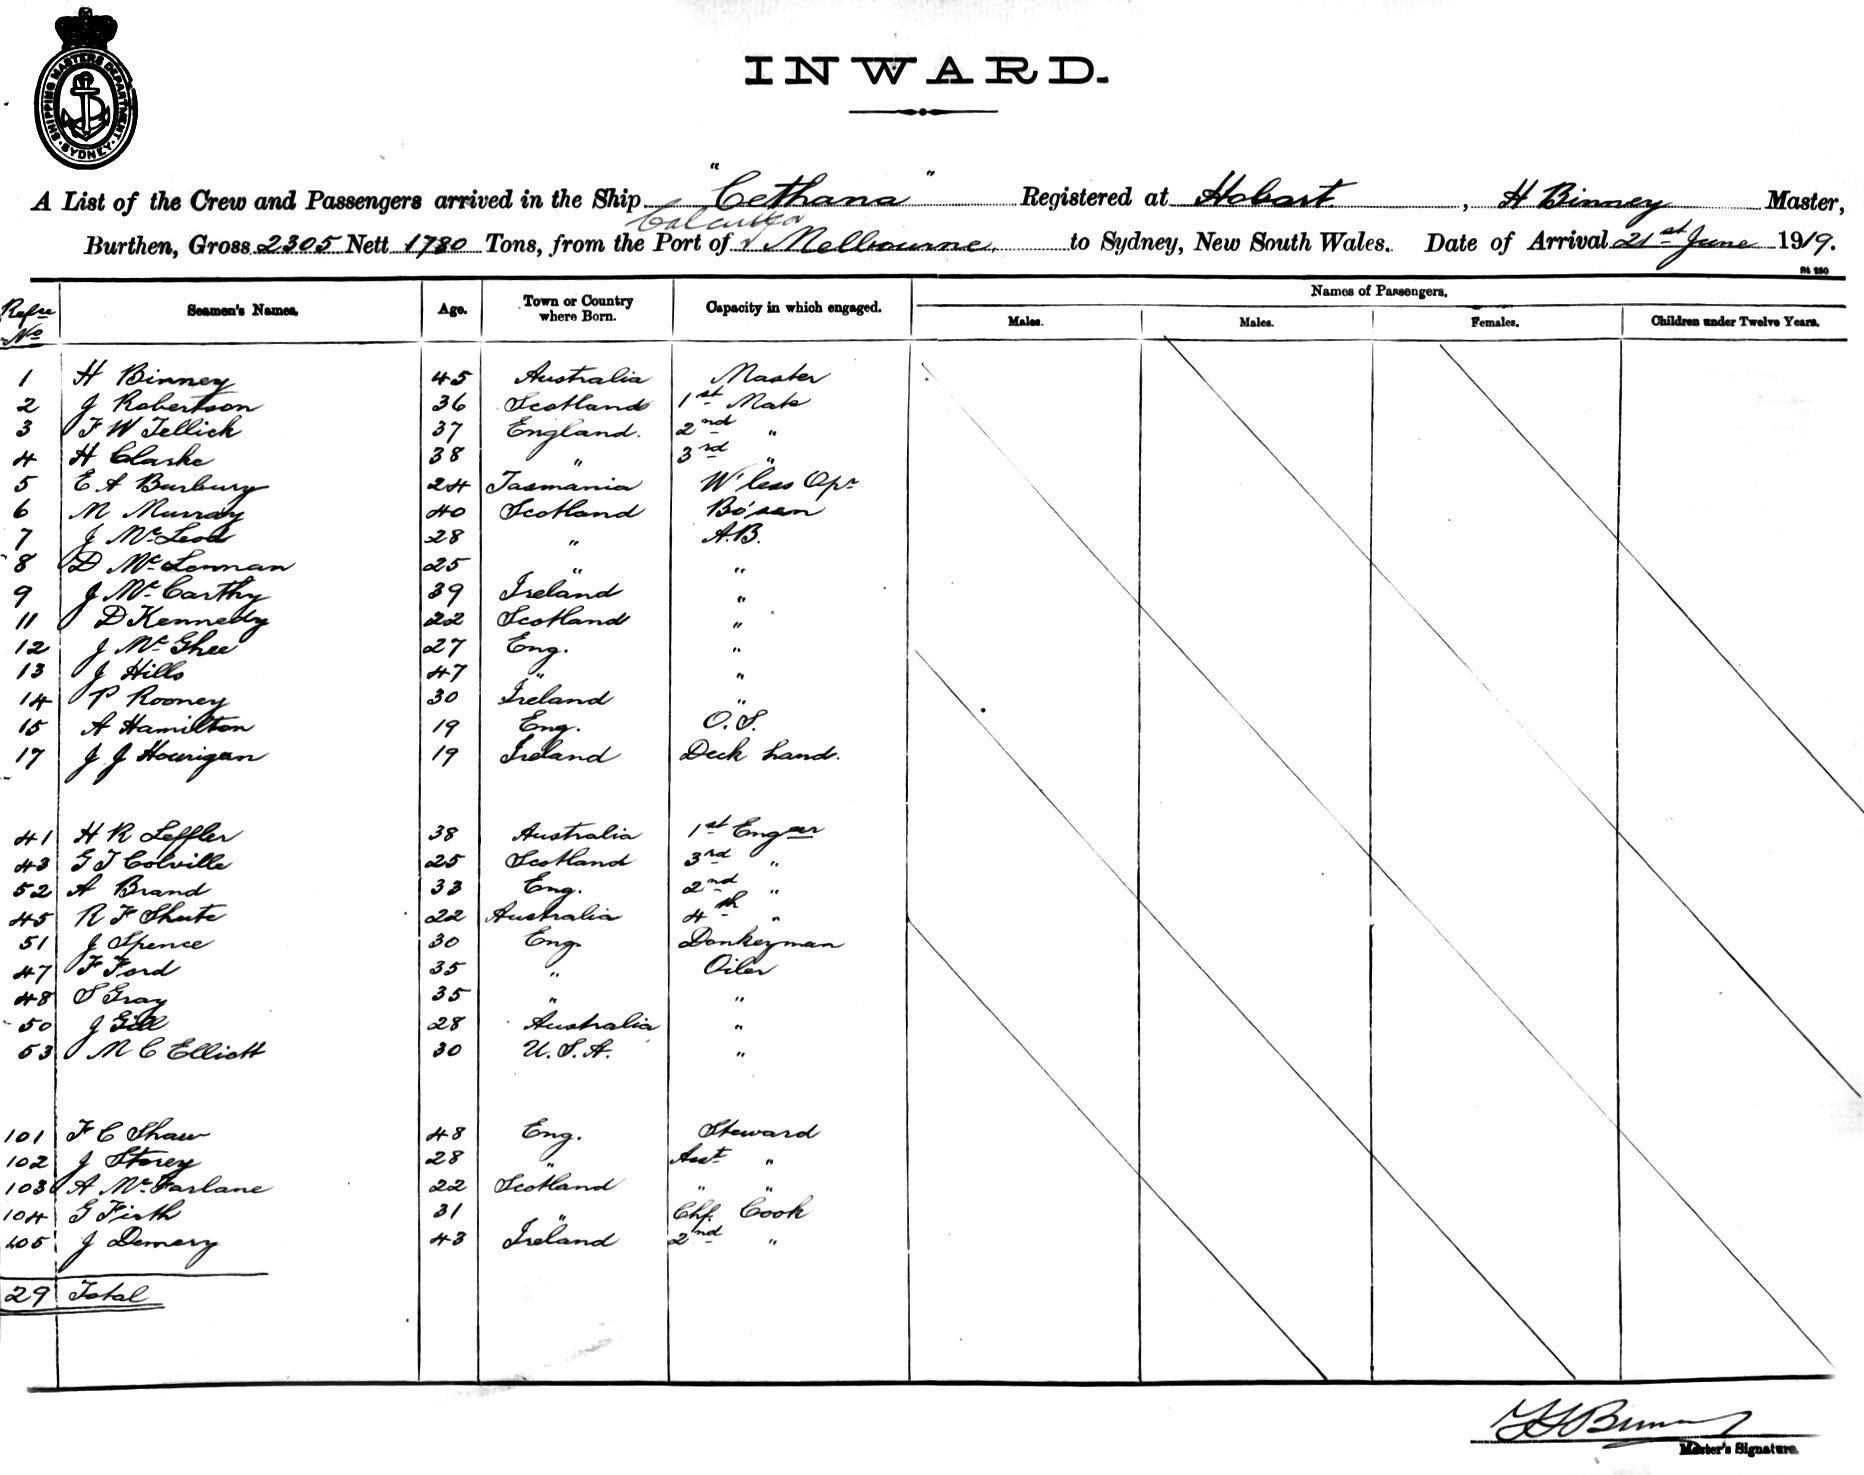 SHIPPING MASTERS DEPARTMENT
SYDNEY
INWARD.
A List of the Crew and Passengers arrived in the Ship "Cethana" Registered at Hobart, H Binney Master,
Calcutta
Burthen, Gross 2305 Nett 1780 Tons, from the Port of & Melbourne, to Sydney, New South Wales. Date of Arrival 21st June 1919.
Refce No Seamen's Names. Age. Town or Country where Born. Capacity in which engaged. Names of Passengers.
Males. Males. Females. Children under Twelve Years.
1 H Binney 45 Australia Master
2 J Robertson 36 Scotland 1st Mate
3 F W Tellick 37 England. 2nd "
4 H Clarke 38 " 3rd "
5 E A Burbury 24 Tasmania W'less Opr
6 M Murray 40 Scotland Bo'sun
7 J McLeod 28 " A.B.
8 D McLennan 25 " "
9 J McCarthy 39 Ireland "
11 D Kennedy 22 Scotland "
12 J McGhee 27 Eng. "
13 J Hills 47 " "
14 P Rooney 30 Ireland "
15 A Hamilton 19 Eng. O.S.
17 J J Hourigan 19 Ireland Deck hand.
41 H R Leffler 38 Australia 1st Engeer
43 G T Colville 25 Scotland 3rd "
52 A Brand 33 Eng. 2nd "
45 R F Shute 22 Australia 4th "
51 J Spence 30 Eng. Donkeyman
47 F Ford 35 " Oiler
48 S Gray 35 " "
50 J Gill 28 Australia "
53 M C Elliott 30 U.S.A. "
101 F C Shaw 48 Eng. Steward
102 J Storey 28 " Asst "
103 A McFarlane 22 Scotland " "
104 G Firth 31 " Chf. Cook
105 J Demery 43 Ireland 2nd "
29 Total
H Binney
Master's Signature.